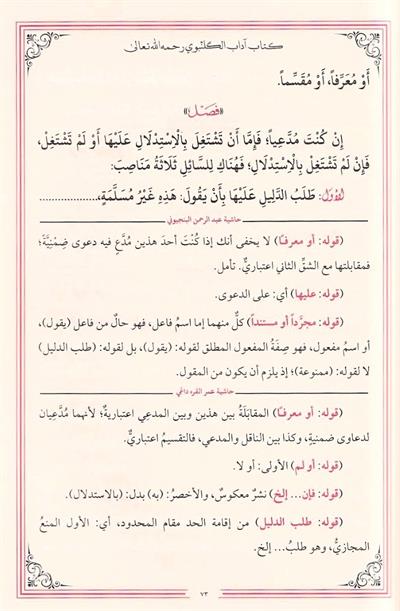 كتاب آداب الكلنبوي رحمه الله تعالى
أَوْ مُعَرِّفاً، أَوْ مُقَسِّماً.
﴿فَصْلٌ﴾
إِنْ كُنْتَ مُدَّعِياً؛ فَإِمَّا أَنْ تَشْتَغِلَ بِالْاِسْتِدْلَالِ عَلَيْهَا أَوْ لَمْ تَشْتَغِلْ،
فَإِنْ لَمْ تَشْتَغِلْ بِالْاِسْتِدْلَالِ؛ فَهُنَاكَ لِلسَّائِلِ ثَلَاثَةُ مَنَاصِبَ:
الأوّل: طَلَبُ الدَّلِيلِ عَلَيْهَا بِأَنْ يَقُولَ: هَذِهِ غَيْرُ مُسَلَّمَةٍ،....................
حاشية عبد الرحمن البنجيوني
(قوله: أو معرفاً) لا يخفى أنك إذا كُنْتَ أحدَ هذين مُدَّعٍ فيه دعوى ضِمْنِيَّةً؛
فمقابلتها مع الشقِّ الثاني اعتباريٌّ. تأمل.
(قوله: عليها) أي: على الدعوى.
(قوله: مجرَّداً أو مستنداً) كلٌّ منهما إما اسمُ فاعل، فهو حالٌ من فاعل (يقول)،
أو اسم مفعول، فهو صِفَةُ المفعول المطلق لقوله: (يقول)، بل لقوله: (طلب الدليل)
لا لقوله: (ممنوعة)؛ إذ يلزم أن يكون من المقول.
حاشية عمر القره داغي
(قوله: أو معرفاً) المقابَلَةُ بين هذين وبين المدعِي اعتباريةٌ؛ لأنهما مُدَّعِيان
لدعاوى ضمنيةٍ، وكذا بين الناقل والمدعي، فالتقسيمُ اعتباريٌّ.
(قوله: أو لم) الأولى: أو لا.
(قوله: فإن... إلخ) نشرٌ معكوسٌ، والأخصرُ: (به) بدل: (بالاستدلال).
(قوله: طلب الدليل) من إقامة الحد مقام المحدود، أي: الأول المنعُ
المجازيُّ، وهو طلبُ... إلخ.
٧٣